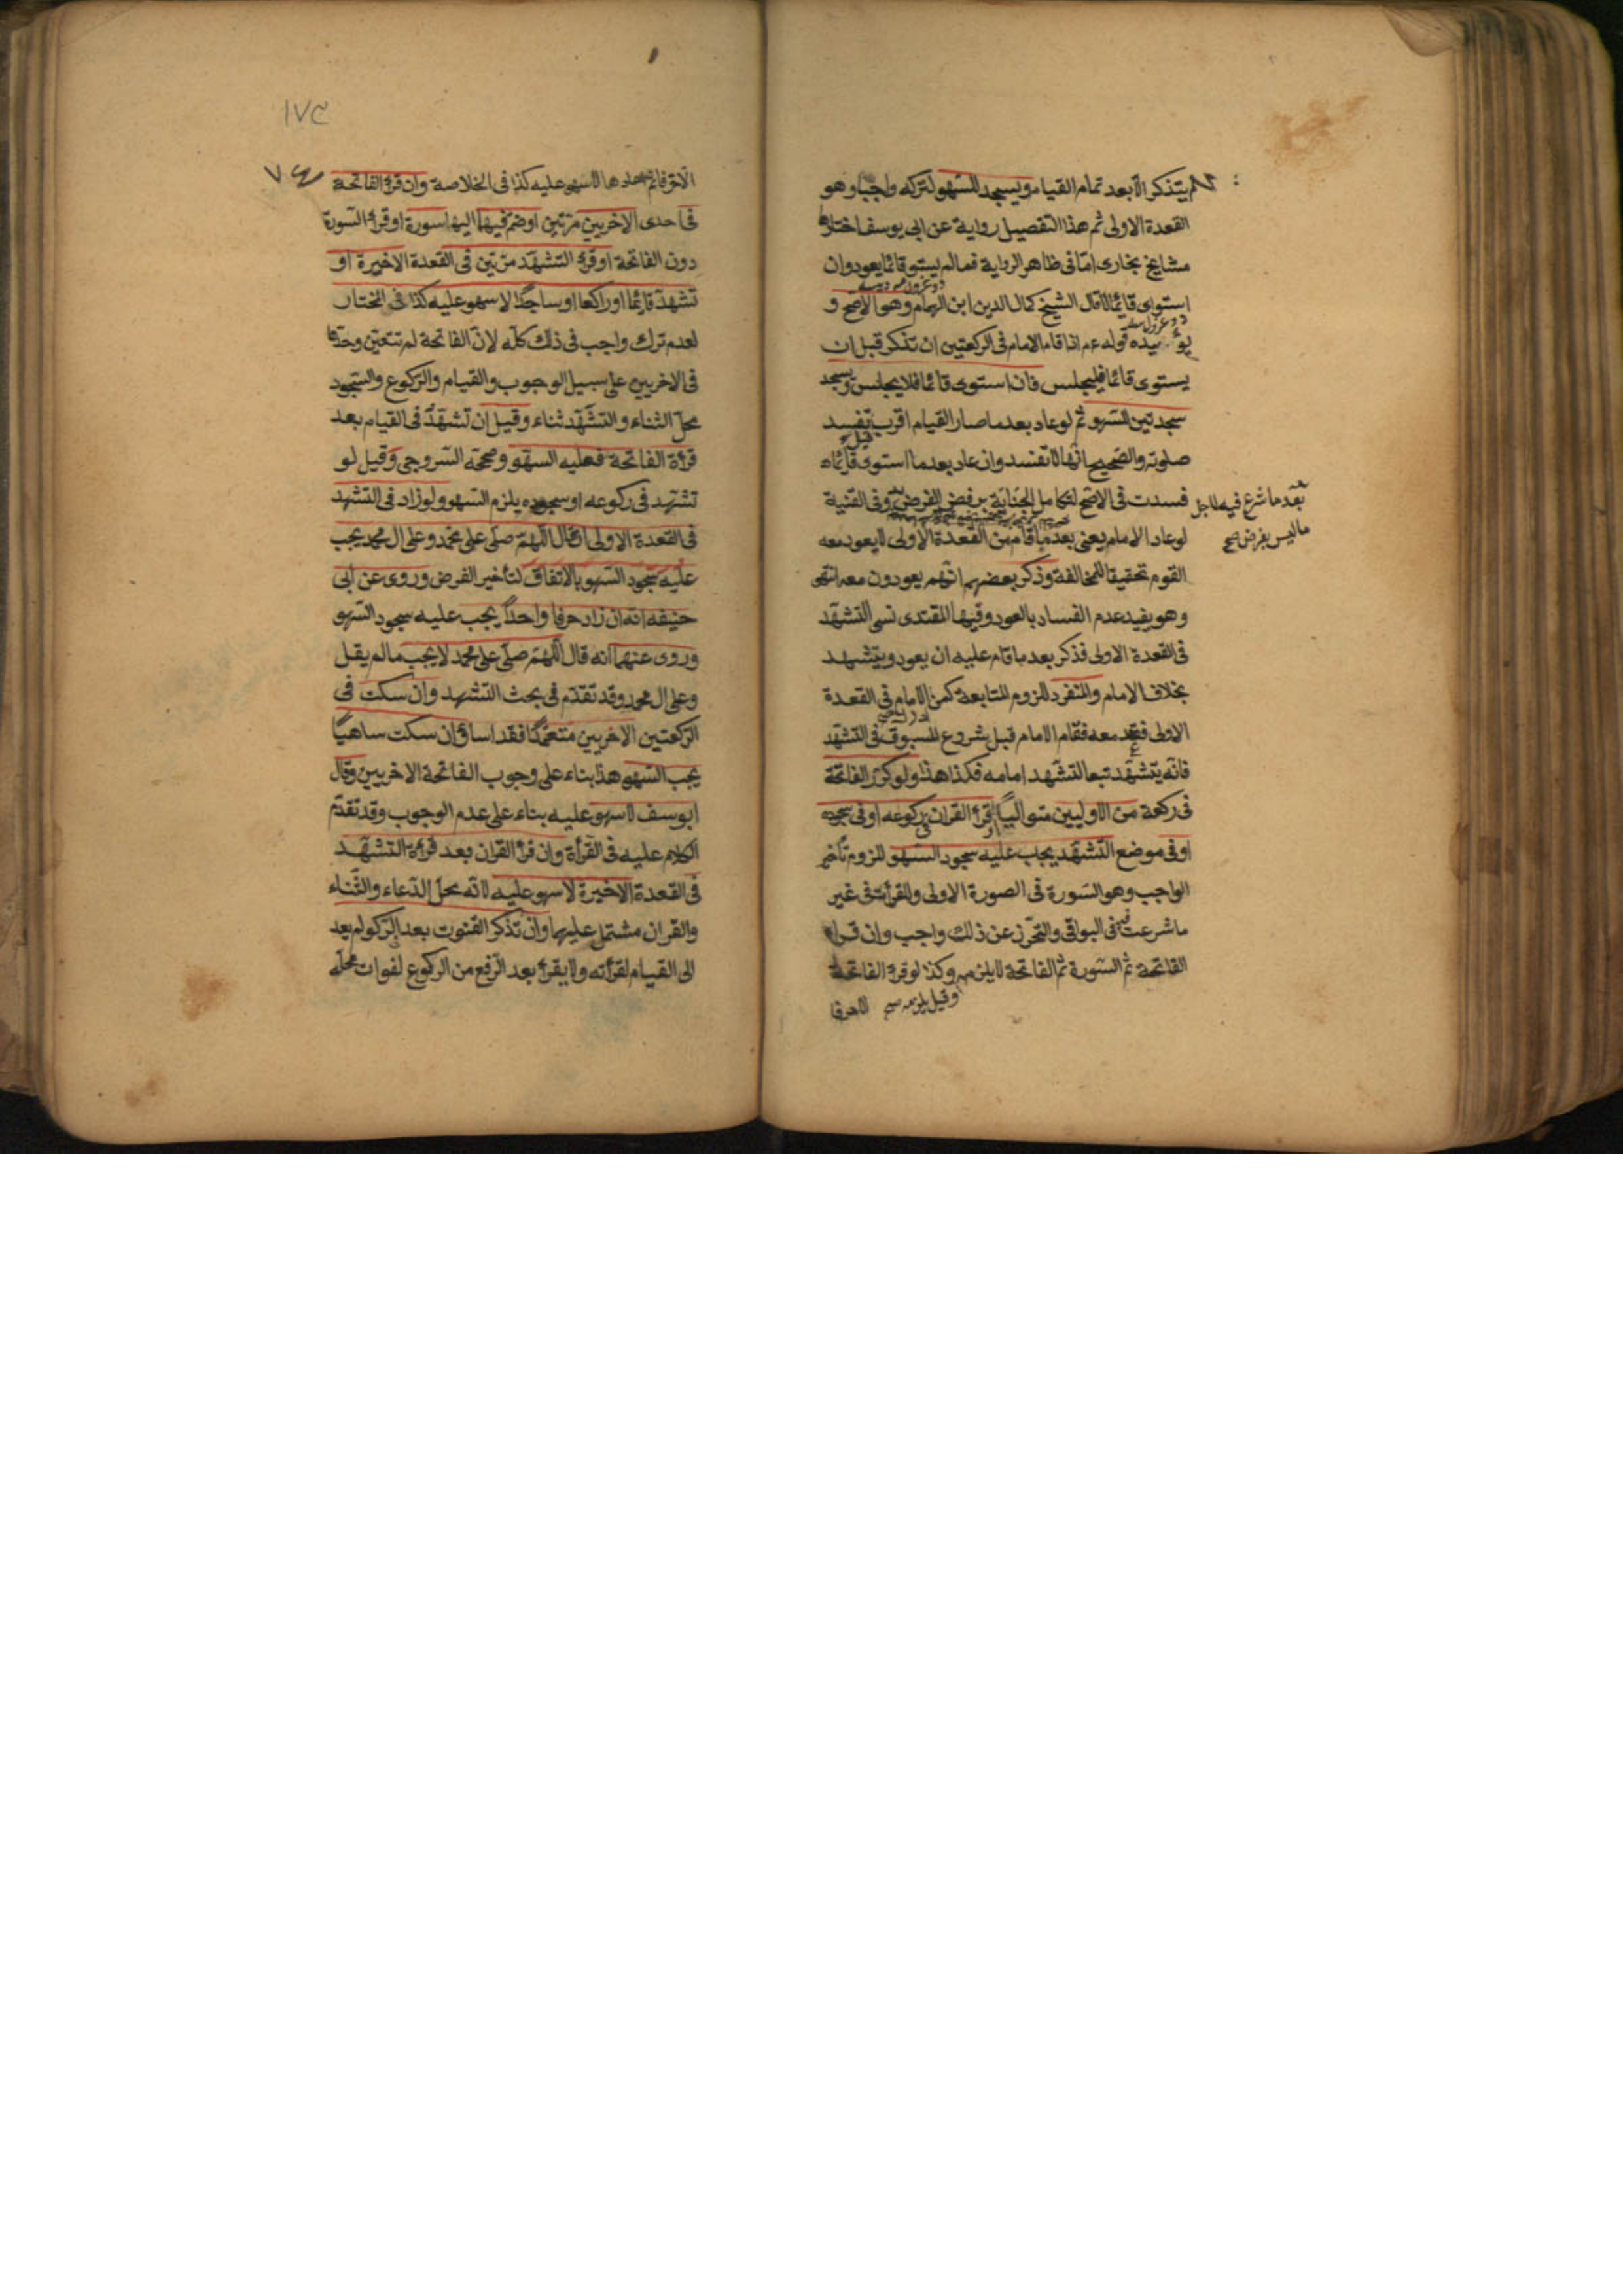 لم يتذكر الا بعد تمام القيام ويسجد للسهو لتركه واجبا وهو
القعدة الاولى ثم هذا التفصيل رواية عن ابى يوسف اختارها
مشايخ بخارى اما فى ظاهر الرواية فما لم يستو قائما يعود وان
استوى قائما لا قال الشيخ كمال الدين ابن الهمام وهو الاصح و
يؤيده قوله عم اذا قام الامام فى الركعتين ان تذكر قبل ان
يستوى قائما فليجلس فان استوى قائما فلا يجلس ويسجد
سجدتين السهو ثم لو عاد بعد ما صار القيام اقرب قيل تفسد
صلوته والصحيح انها لا تفسد وان عاد بعد ما استوى قائما
فسدت فى الاصح لتكامل الجناية برفض الفرض وفى القنية
بعد ما شرع فيه لاجل
ما ليس بفرض صح
لو عاد الامام يعنى بعد ما قام من القعدة الاولى لا يعود معه
القوم تحقيقا للمخالفة وذكر بعضهم انهم يعودون معه انتهى
وهو يفيد عدم الفساد بالعود وفيها المقتدى نسى التشهد
فى القعدة الاولى فذكر بعد ما قام عليه ان يعود ويتشهد
بخلاف الامام والمنفرد للزوم المتابعة كمن الامام فى القعدة
الاولى فقعد معه فقام الامام قبل شروع المسبوق فى التشهد
فانه يتشهد تبعا لتشهد امامه فكذا هذا ولو كرر الفاتحة
فى ركعة من الاوليين متواليا او قرأ القران فى ركوعه او فى سجوده
او فى موضع التشهد يجب عليه سجود السهو للزوم تأخير
الواجب وهو السورة فى الصورة الاولى والقرأة فى غير
ما شرعت فيه فى البواقى والتحرز عن ذلك واجب وان قرأ
الفاتحة ثم السورة ثم الفاتحة لا يلزمه وكذا لو قرأ الفاتحة
وقيل يلزمه صح
الا حرفا
١٧٤
الا حرفا السهو عليه كذا فى الخلاصة وان قرأ الفاتحة
فى احدى الاخريين مرتين او ضم فيهما اليها سورة او قرأ السورة
دون الفاتحة او قرأ التشهد مرتين فى القعدة الاخيرة او
تشهد قائما او راكعا او ساجدا لا سهو عليه كذا فى المختار
لعدم ترك واجب فى ذلك كله لان الفاتحة لم تتعين وحدها
فى الاخريين على سبيل الوجوب والقيام والركوع والسجود
محل الثناء والتشهد ثناء وقيل ان تشهد فى القيام بعد
قرأة الفاتحة فعليه السهو وصححه السروجى وقيل لو
تشهد فى ركوعه او سجوده يلزم السهو ولو زاد فى التشهد
فى القعدة الاولى او قال اللهم صلى على محمد وعلى ال محمد يجب
عليه سجود السهو بالاتفاق لتأخير الفرض وروى عن ابى
حنيفه انه ان زاد حرفا واحدا يجب عليه سجود السهو
وروى عنهما انه قال اللهم صلى على محمد لا يجب ما لم يقل
وعلى ال محمد وقد تقدم فى بحث التشهد وان سكت فى
الركعتين الاخريين متعمدا فقد اسأ وان سكت ساهيا
يجب السهو هذا بناء على وجوب الفاتحة الاخريين وقال
ابو يوسف لا سهو عليه بناء على عدم الوجوب وقد تقدم
الكلام عليه فى القرأة وان قرأ القران بعد قرأة التشهد
فى القعدة الاخيرة لا سهو عليه لانه محل الدعاء والثناء
والقران مشتمل عليهما وان تذكر القنوت بعد الركوع لم يعد
الى القيام لقرأته ولا يقرأ بعد الرفع من الركوع لفوات محله